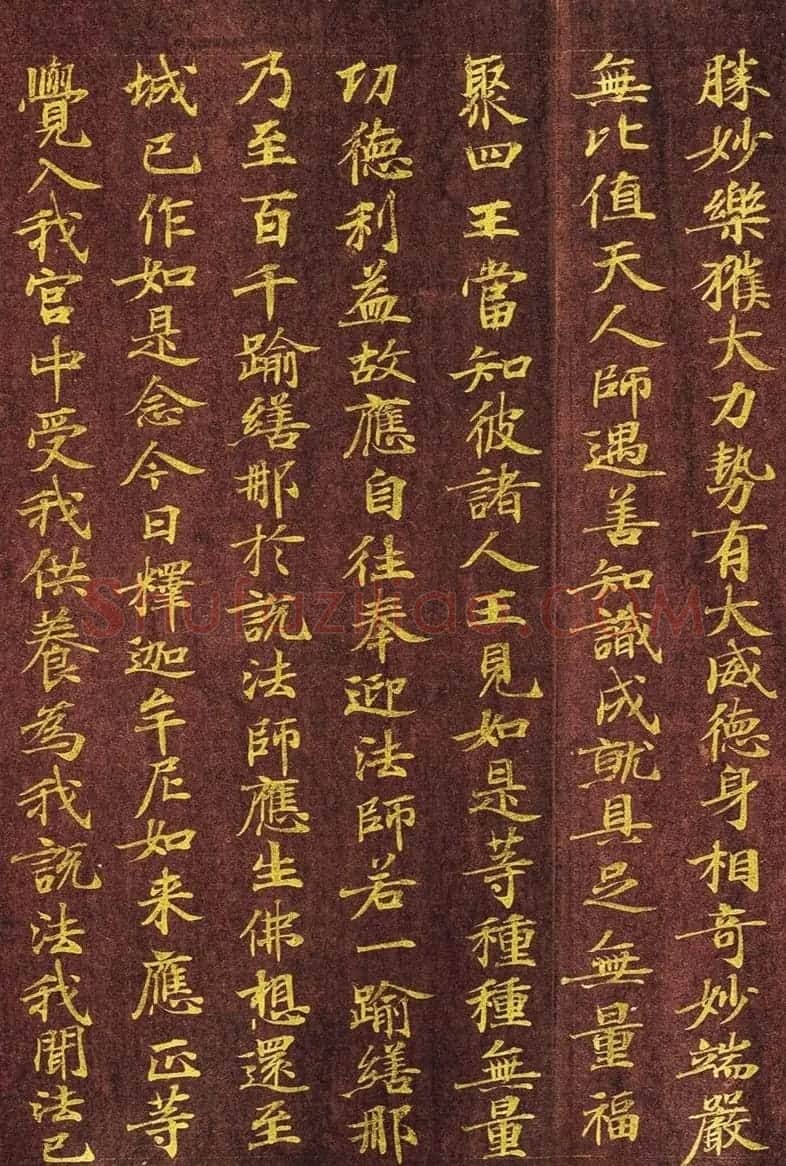 勝妙樂獲大力勢有大威德身相奇妙端嚴
無比值天人師遇善知識成就具足無量福
聚四王當知彼諸人王見如是等種種無量
功德利益故應自往奉迎法師若一踰繕那
乃至百千踰繕那於說法師應生佛想還至
城已作如是念今日釋迦牟尼如来應正等
覺入我宮中受我供養為我說法我聞法已
shufazidao.COM